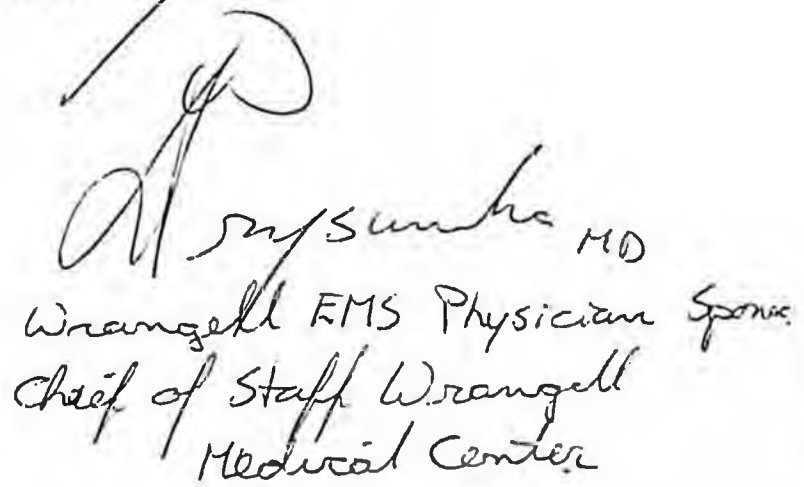 MD
Wrangell EMS Physician
Chief of Staff Wrangell
Medical Center